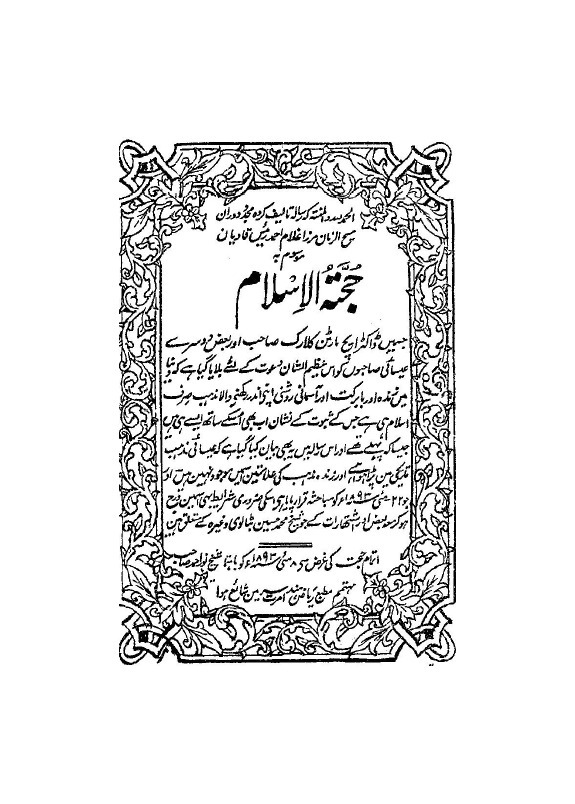 الحمد للہ والمنۃ کہ رسالہ تالیف کردہ مجدد دوران
مسیح الزمان مرزا غلام احمد رئیس قادیان
موسوم بہ
حُجَّۃُ الْاِسْلَام
جسمیں ڈاکٹر ایچ مارٹن کلارک صاحب اور بعض دوسرے
عیسائی صاحبوں کو اس عظیم الشان دعوت کے لئے بلایا گیا ہے کہ دنیا
میں زندہ اور بابرکت اور آسمانی روشنی اپنے اندر رکھنے والا مذہب صرف
اسلام ہی ہے جس کے ثبوت کے نشان اب بھی اسکے ساتھ ایسے ہی ہیں
جیسا کہ پہلے تھے اور اس رسالہ میں یہ بھی بیان کیا گیا ہے کہ عیسائی مذہب
تاریکی مین پڑا ہوا ہے اور زندہ مذہب کی علامتین اسمیں موجود نہین ہین اور
جو ۲۲ مئی ۱۸۹۳ء کو مباحثہ قرار پایا ہے اسکی ضروری شرائط بھی اسمین درج
ہوکر معہ بعض اشتہارات کے جو شیخ محمد حسین بٹالوی وغیرہ کے متعلق ہین
اتمام حجت کی غرض سے ۸ مئی ۱۸۹۳ء کو باہتمام شیخ نور احمد صاحب
مہتمم مطبع ریاض ہند امرتسر مین شائع ہوا